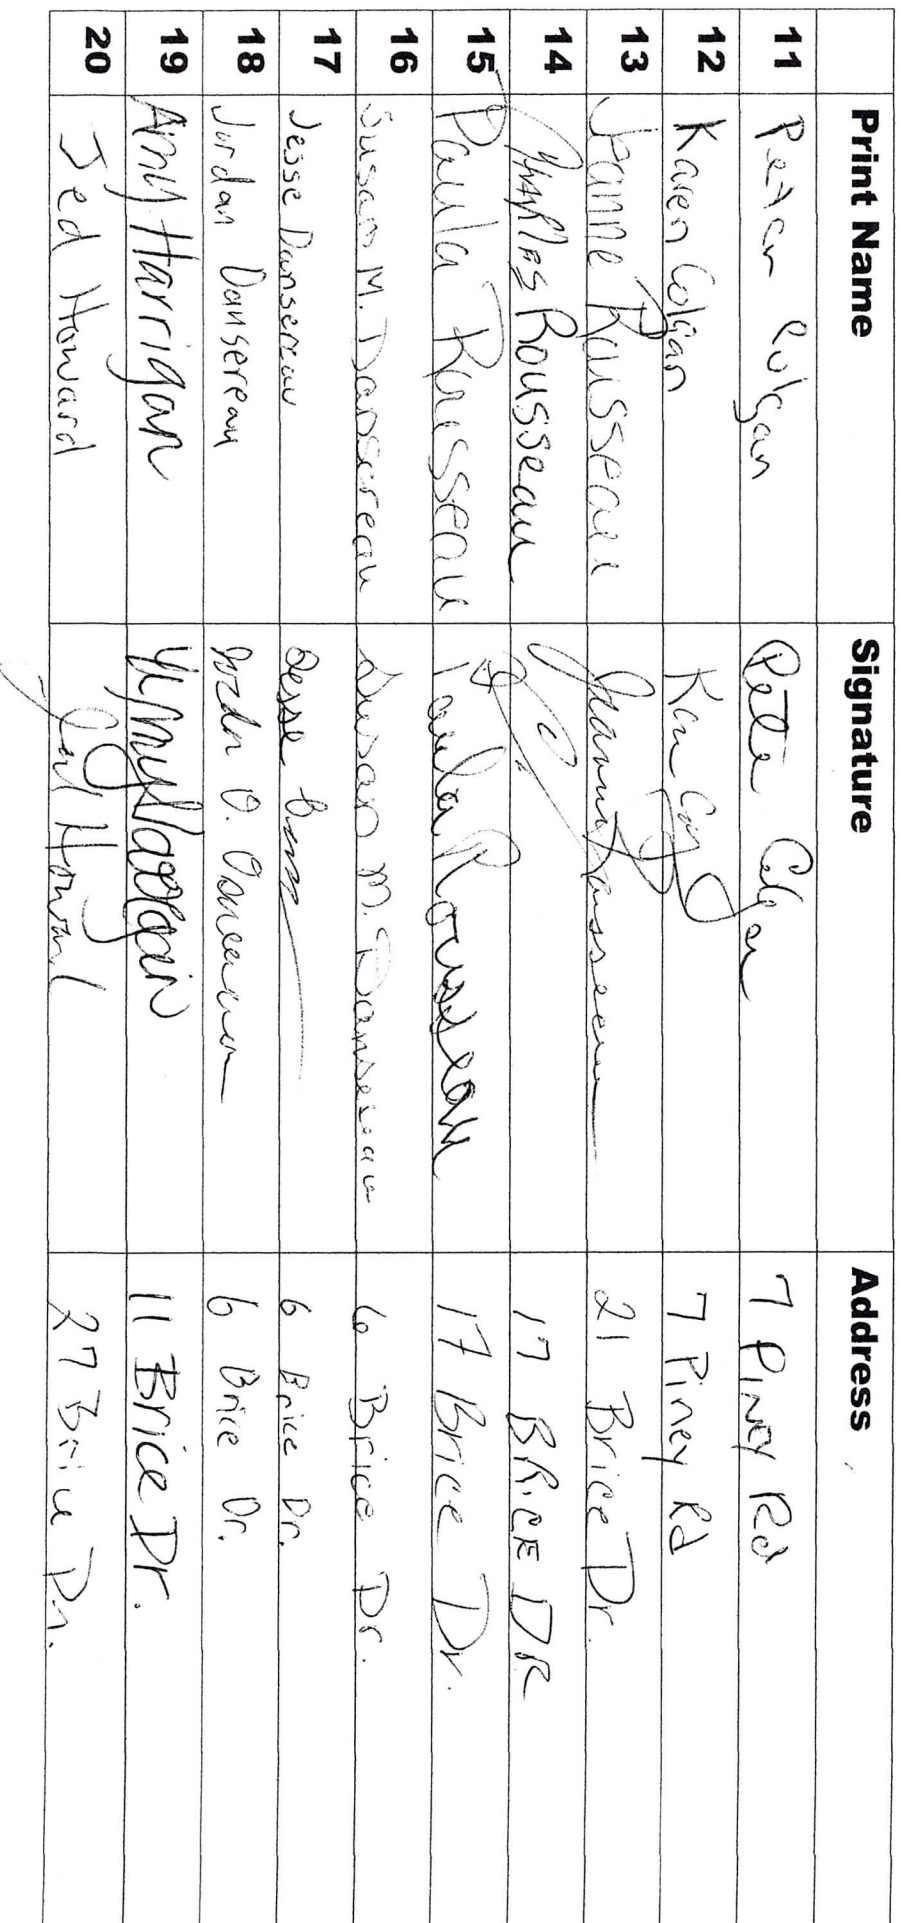 Print Name Signature Address
11 Peter Colgan Pete Colgan 7 Piney Rd
12 Karen Colgan 7 Piney Rd
13 Jeanne Rousseau Jeanne Rousseau 21 Brice Dr.
14 Charles Rousseau 17 BRICE DR
15 Paula Rousseau Paula Rousseau 17 Brice Dr.
16 Susan M. Dansereau Susan M. Dansereau 6 Brice Dr.
17 Jesse Dansereau Jesse 6 Brice Dr.
18 Jordan Dansereau 6 Brice Dr.
19 Amy Harrigan Amy Harrigan 11 Brice Dr.
20 Jed Howard Jed Howard 27 Brice Dr.